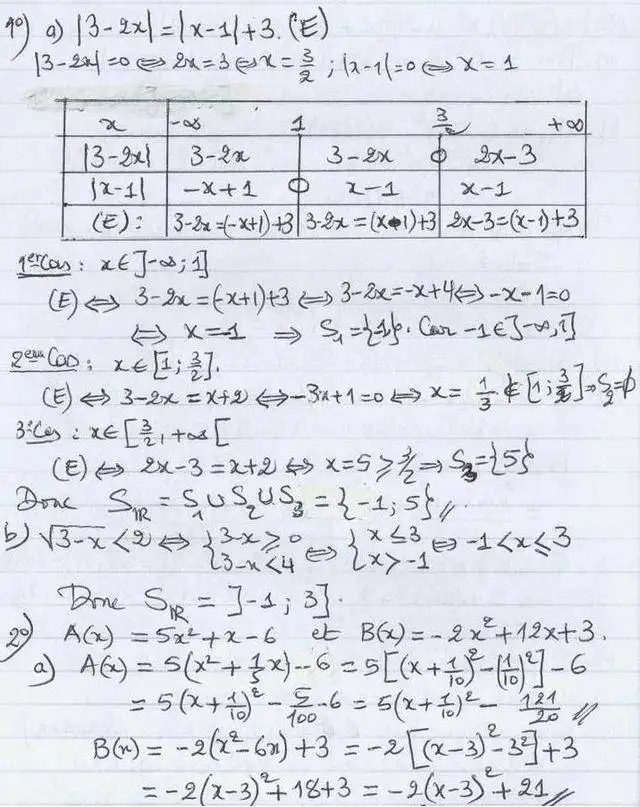 1°) a) |3-2x| = |x-1| + 3. (E)
|3-2x| = 0 ⇔ 2x = 3 ⇔ x = 3/2 ; |x-1| = 0 ⇔ x = 1
x -∞ 1 3/2 +∞
|3-2x| 3-2x 3-2x 0 2x-3
|x-1| -x+1 0 x-1 x-1
(E): 3-2x=(-x+1)+3 3-2x=(x-1)+3 2x-3=(x-1)+3
1er Cas : x∈]-∞;1]
(E) ⇔ 3-2x=(-x+1)+3 ⇔ 3-2x=-x+4 ⇔ -x-1=0
⇔ x=-1 ⇒ S₁={1}. Car -1∈]-∞,1]
2em Cas : x∈[1;3/2].
(E) ⇔ 3-2x=x+2 ⇔ -3x+1=0 ⇔ x=1/3 ∉ [1;3/2] ⇒ S₂=ϕ
3°Cas : x∈[3/2,+∞[
(E) ⇔ 2x-3=x+2 ⇔ x=5 ≥ 3/2 ⇒ S₃={5}
Donc S_IR = S₁∪S₂∪S₃ = {-1;5}//.
b) √(3-x) < 2 ⇔ { 3-x ≥ 0 3-x < 4 ⇔ { x ≤ 3 x > -1 ⇔ -1 < x ≤ 3
Donc S_IR = ]-1;3].
2°) A(x) = 5x² + x - 6 et B(x) = -2x² + 12x + 3.
a) A(x) = 5(x² + 1/5 x) - 6 = 5[(x + 1/10)² - (1/10)²] - 6
= 5(x + 1/10)² - 5/100 - 6 = 5(x + 1/10)² - 121/20 //
B(x) = -2(x² - 6x) + 3 = -2[(x-3)² - 3²] + 3
= -2(x-3)² + 18 + 3 = -2(x-3)² + 21 //